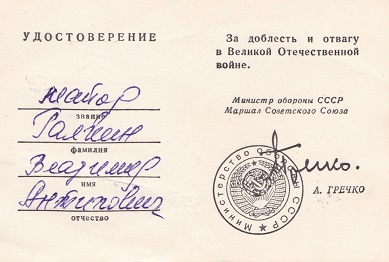 УДОСТОВЕРЕНИЕ
майор
звание
Галкин
фамилия
Владимир
имя
Антипович
отчество
За доблесть и отвагу
в Великой Отечественной
войне.
Министр обороны СССР
Маршал Советского Союза
Министерство обороны СССР
А. ГРЕЧКО